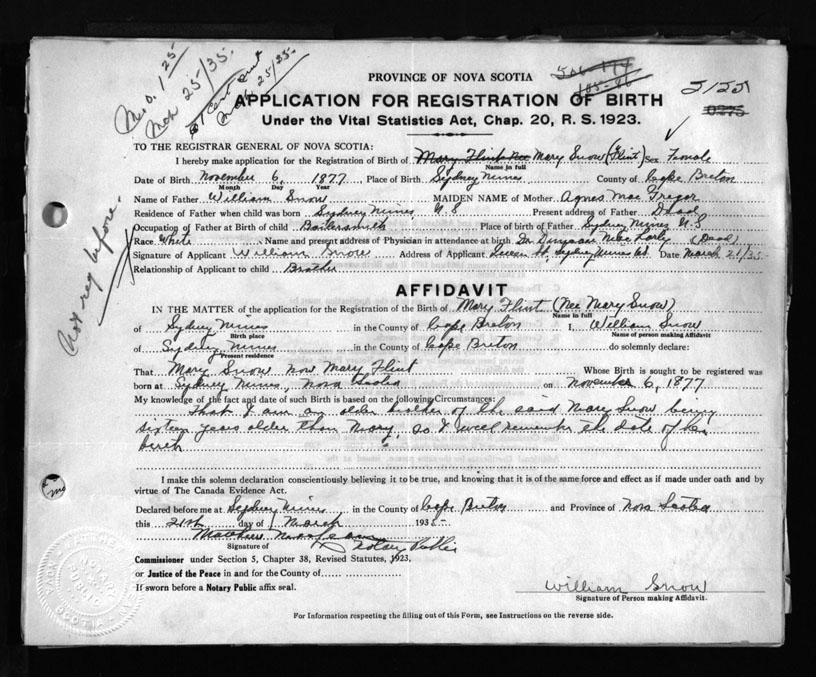 Mar 25/35.
PROVINCE OF NOVA SCOTIA
5125
APPLICATION FOR REGISTRATION OF BIRTH
Under the Vital Statistics Act, Chap. 20, R. S. 1923.
TO THE REGISTRAR GENERAL OF NOVA SCOTIA:
I hereby make application for the Registration of Birth of Mary Flint nee Mary Snow (Flint) Sex Female
Name in full
Date of Birth November 6, 1877 Place of Birth Sydney Mines County of Cape Breton
Month Day Year
Name of Father William Snow MAIDEN NAME of Mother Agnes Mac Gregor
Residence of Father when child was born Sydney Mines N S Present address of Father Dead
Occupation of Father at Birth of child Boilersmith Place of birth of Father Sydney Mines N.S
Race White Name and present address of Physician in attendance at birth Dr (Dead)
Signature of Applicant William Snow Address of Applicant Queen St, Sydney Mines NS Date March 21/35
Relationship of Applicant to child Brother
Not reg before.
AFFIDAVIT
IN THE MATTER of the application for the Registration of the Birth of Mary Flint (Nee Mary Snow)
Name in full
of Sydney Mines in the County of Cape Breton I, William Snow
Birth place Name of person making Affidavit
of Sydney Mines in the County of Cape Breton do solemnly declare:
Present residence
That Mary Snow now Mary Flint Whose Birth is sought to be registered was
born at Sydney Mines, Nova Scotia on November 6, 1877
My knowledge of the fact and date of such Birth is based on the following Circumstances:
That I am an older brother of the said Mary Snow being
sixteen years older than Mary, so I well remember the date of her
birth
I make this solemn declaration conscientiously believing it to be true, and knowing that it is of the same force and effect as if made under oath and by
virtue of The Canada Evidence Act.
Declared before me at Sydney Mines in the County of Cape Breton and Province of Nova Scotia
this 21st day of March 1935
Notary Public
Signature of
Commissioner under Section 5, Chapter 38, Revised Statutes, 1923.
or Justice of the Peace in and for the County of
If sworn before a Notary Public affix seal.
William Snow
Signature of Person making Affidavit.
For Information respecting the filling out of this Form, see Instructions on the reverse side.